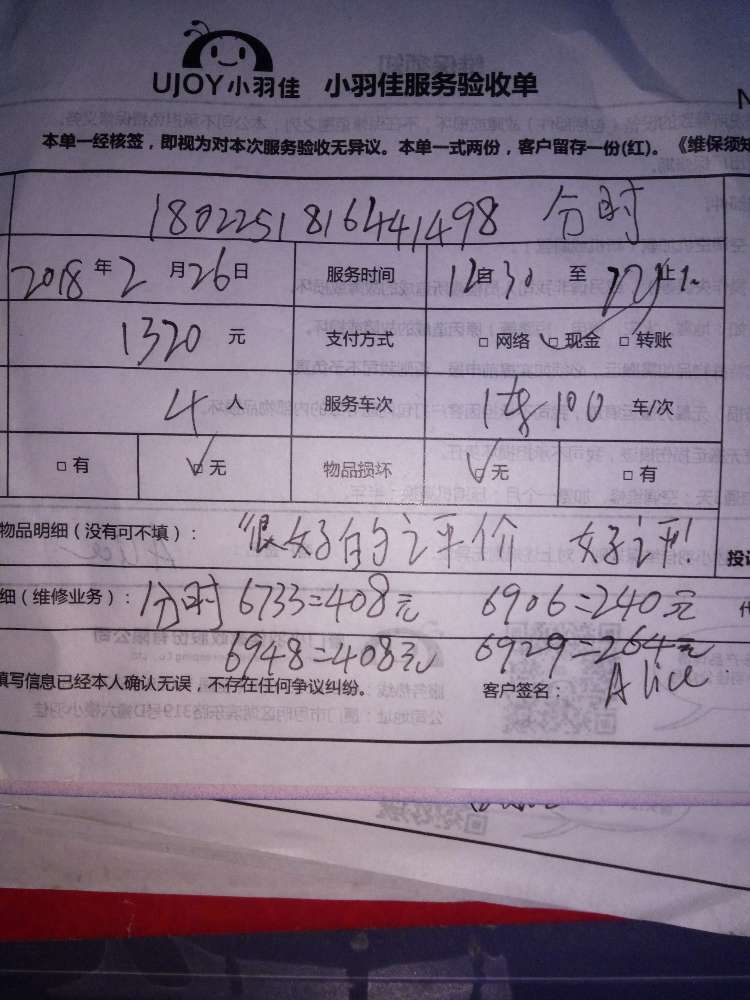 UJOY小羽佳 小羽佳服务验收单
N
本单一经核签，即视为对本次服务验收无异议。本单一式两份，客户留存一份(红)。《维保须知
180225181644 1498 分时
2018年2月26日 服务时间 12自30 至 止
1320元 支付方式 □ 网络 □ 现金 □ 转账
4人 服务车次 100 车/次
□ 有 □ 无 物品损坏 □ 无 □ 有
物品明细（没有可不填）： “很好的评价 好评!
投诉
细（维修业务）： 分时 6733=408元 6906=240元
6948=408元 6929=264元
填写信息已经本人确认无误，不存在任何争议纠纷。 客户签名： Alice